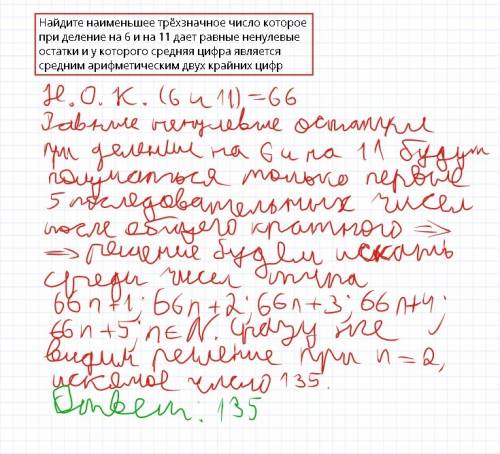 Найдите наименьшее трёхзначное число которое
при деление на 6 и на 11 дает равные ненулевые
остатки и у которого средняя цифра является
средним арифметическим двух крайних цифр
Н.О.К. (6 и 11) = 66
Равные ненулевые остатки
при деление на 6 и на 11 будут
получаться только первые
5 последовательных чисел
после общего кратного ⇒
⇒ решение будем искать
среди чисел типа
66n+1; 66n+2; 66n+3; 66n+4;
66n+5; n∈N. Сразу же
видим решение при n=2,
искомое число 135.
Ответ: 135